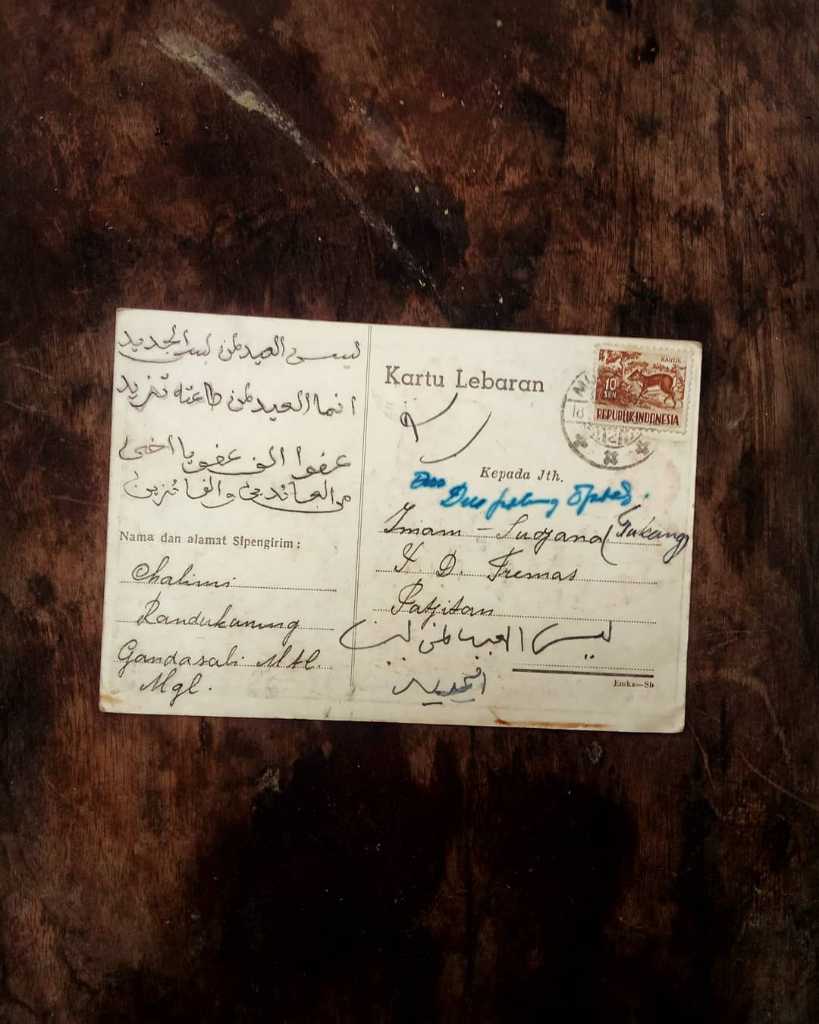 ليس العيد لمن لبس الجديد
انما العيد لمن طاعته تزيد
عفوا الف عفو يا اخى
من العائدين والفائزين
Nama dan alamat Sipengirim :
Chalimi
Randukuning
Gandasuli Mtl.
Mgl.
Kartu Lebaran
KANTJIL
10
SEN
REPUBLIK INDONESIA
Kepada Jth.
Imam - Sudjana (Tukang)
P. D. Tremas
Patjitan
ليس العيد لمن لبس
الجديد
Emka—Sb